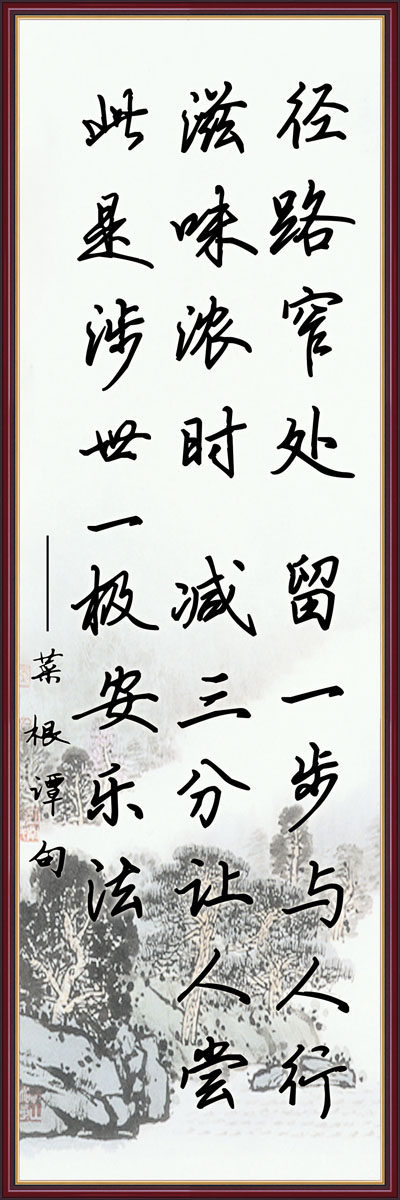 径路窄处 留一步与人行
滋味浓时 减三分让人尝
此是涉世一极安乐法
——菜根谭句